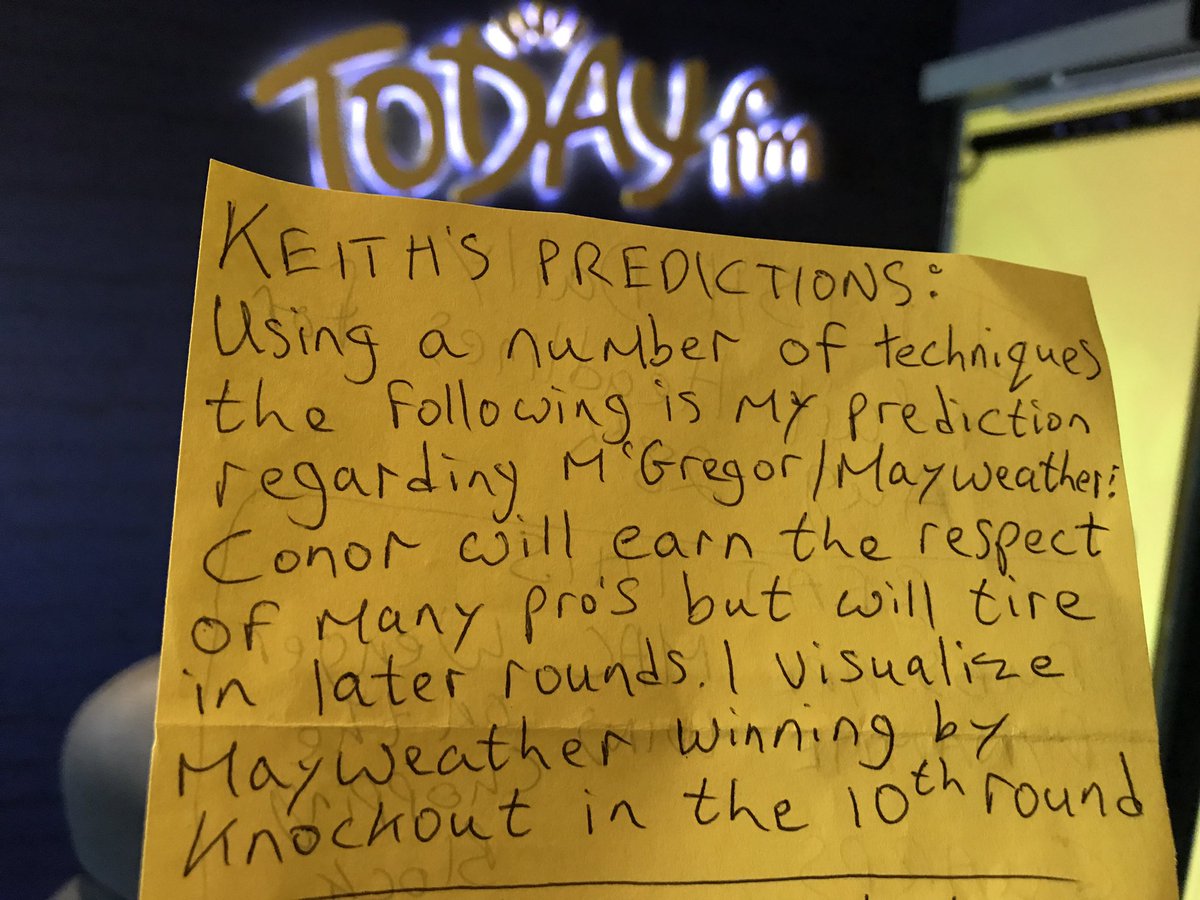 TODAY fm
KEITH'S PREDICTIONS:
Using a number of techniques
the following is my prediction
regarding McGregor/Mayweather:
Conor will earn the respect
of many pro's but will tire
in later rounds. I visualize
Mayweather winning by
knockout in the 10th round